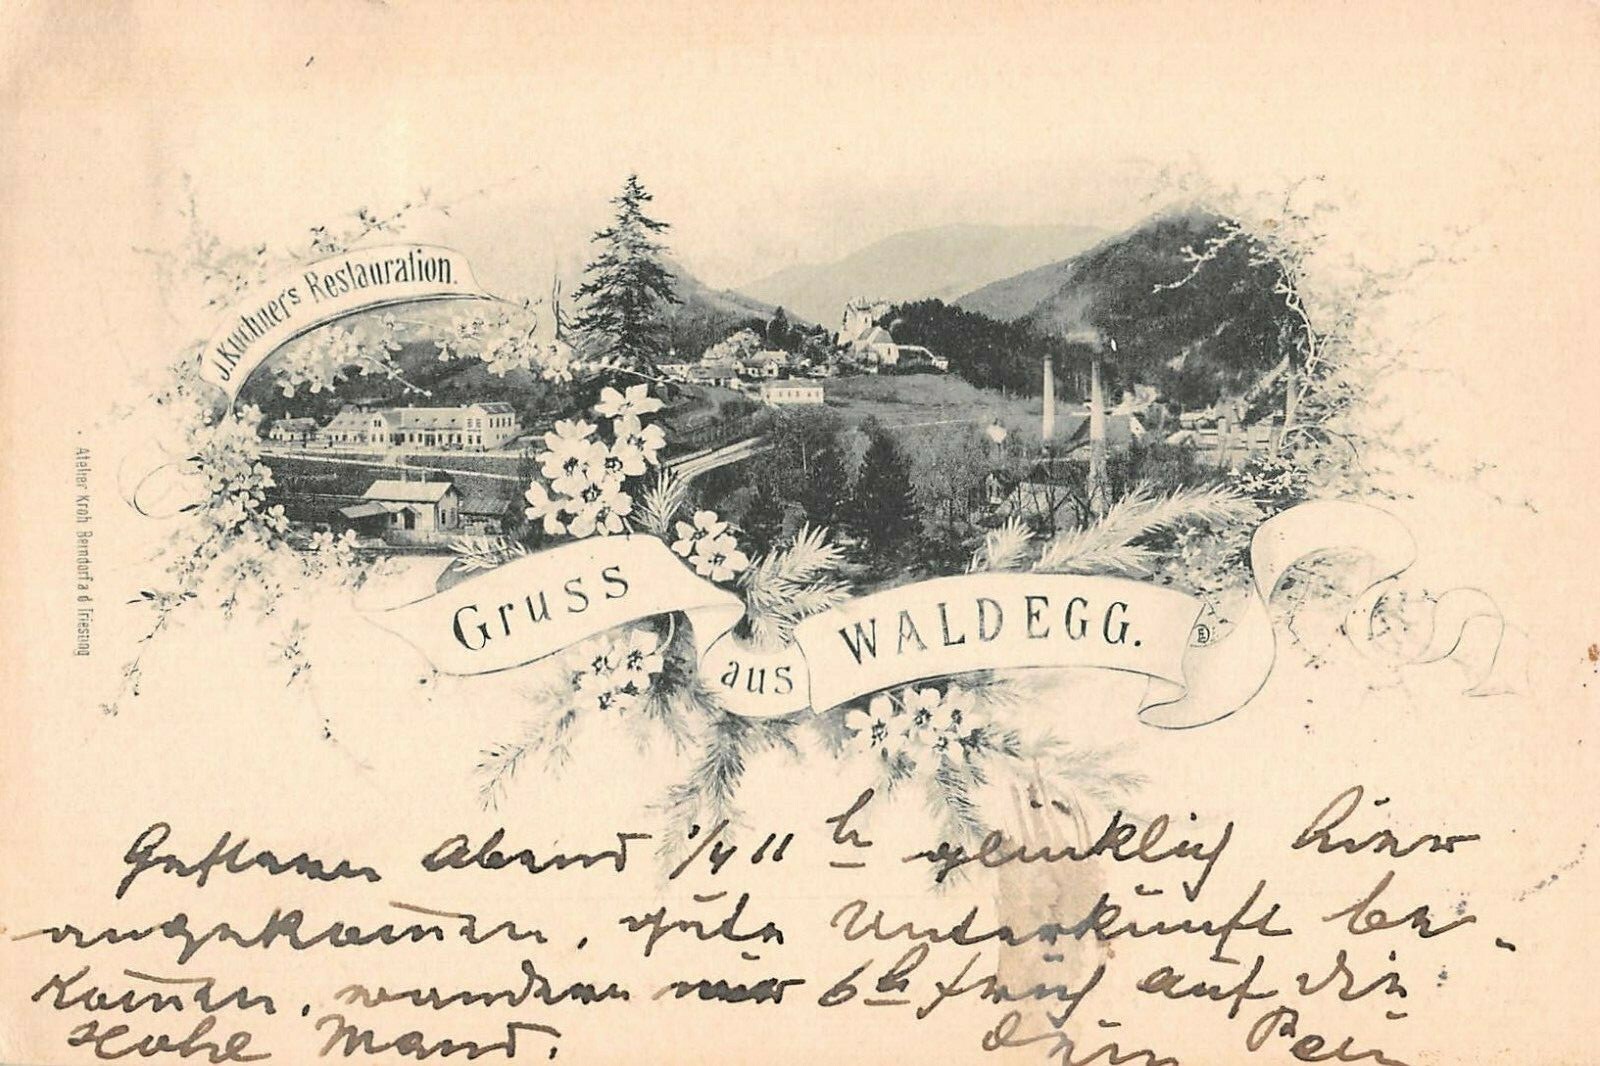 J. Kuchner's Restauration.
Gruss
aus
WALDEGG.
Atelier Kroh Berndorf a d Triesting
Gestern Abend 1/4 11 h glücklich hier
angekommen, gute Unterkunft be-
kommen, wandern wir 6 h früh auf die
Hohe Wand. Dein